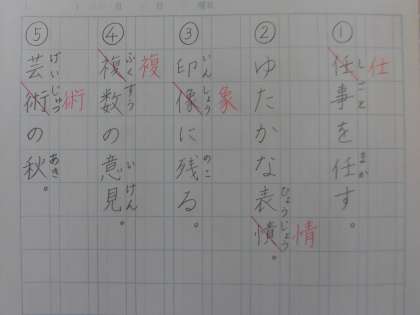 曜日
①任事を任す。
しごと まか
仕
②ゆたかな表憤。
ひょうじょう
情
③印像に残る。
いんしょう のこ
象
④複数の意見。
ふくすう いけん
複
⑤芸術の秋。
げいじゅつ あき
術